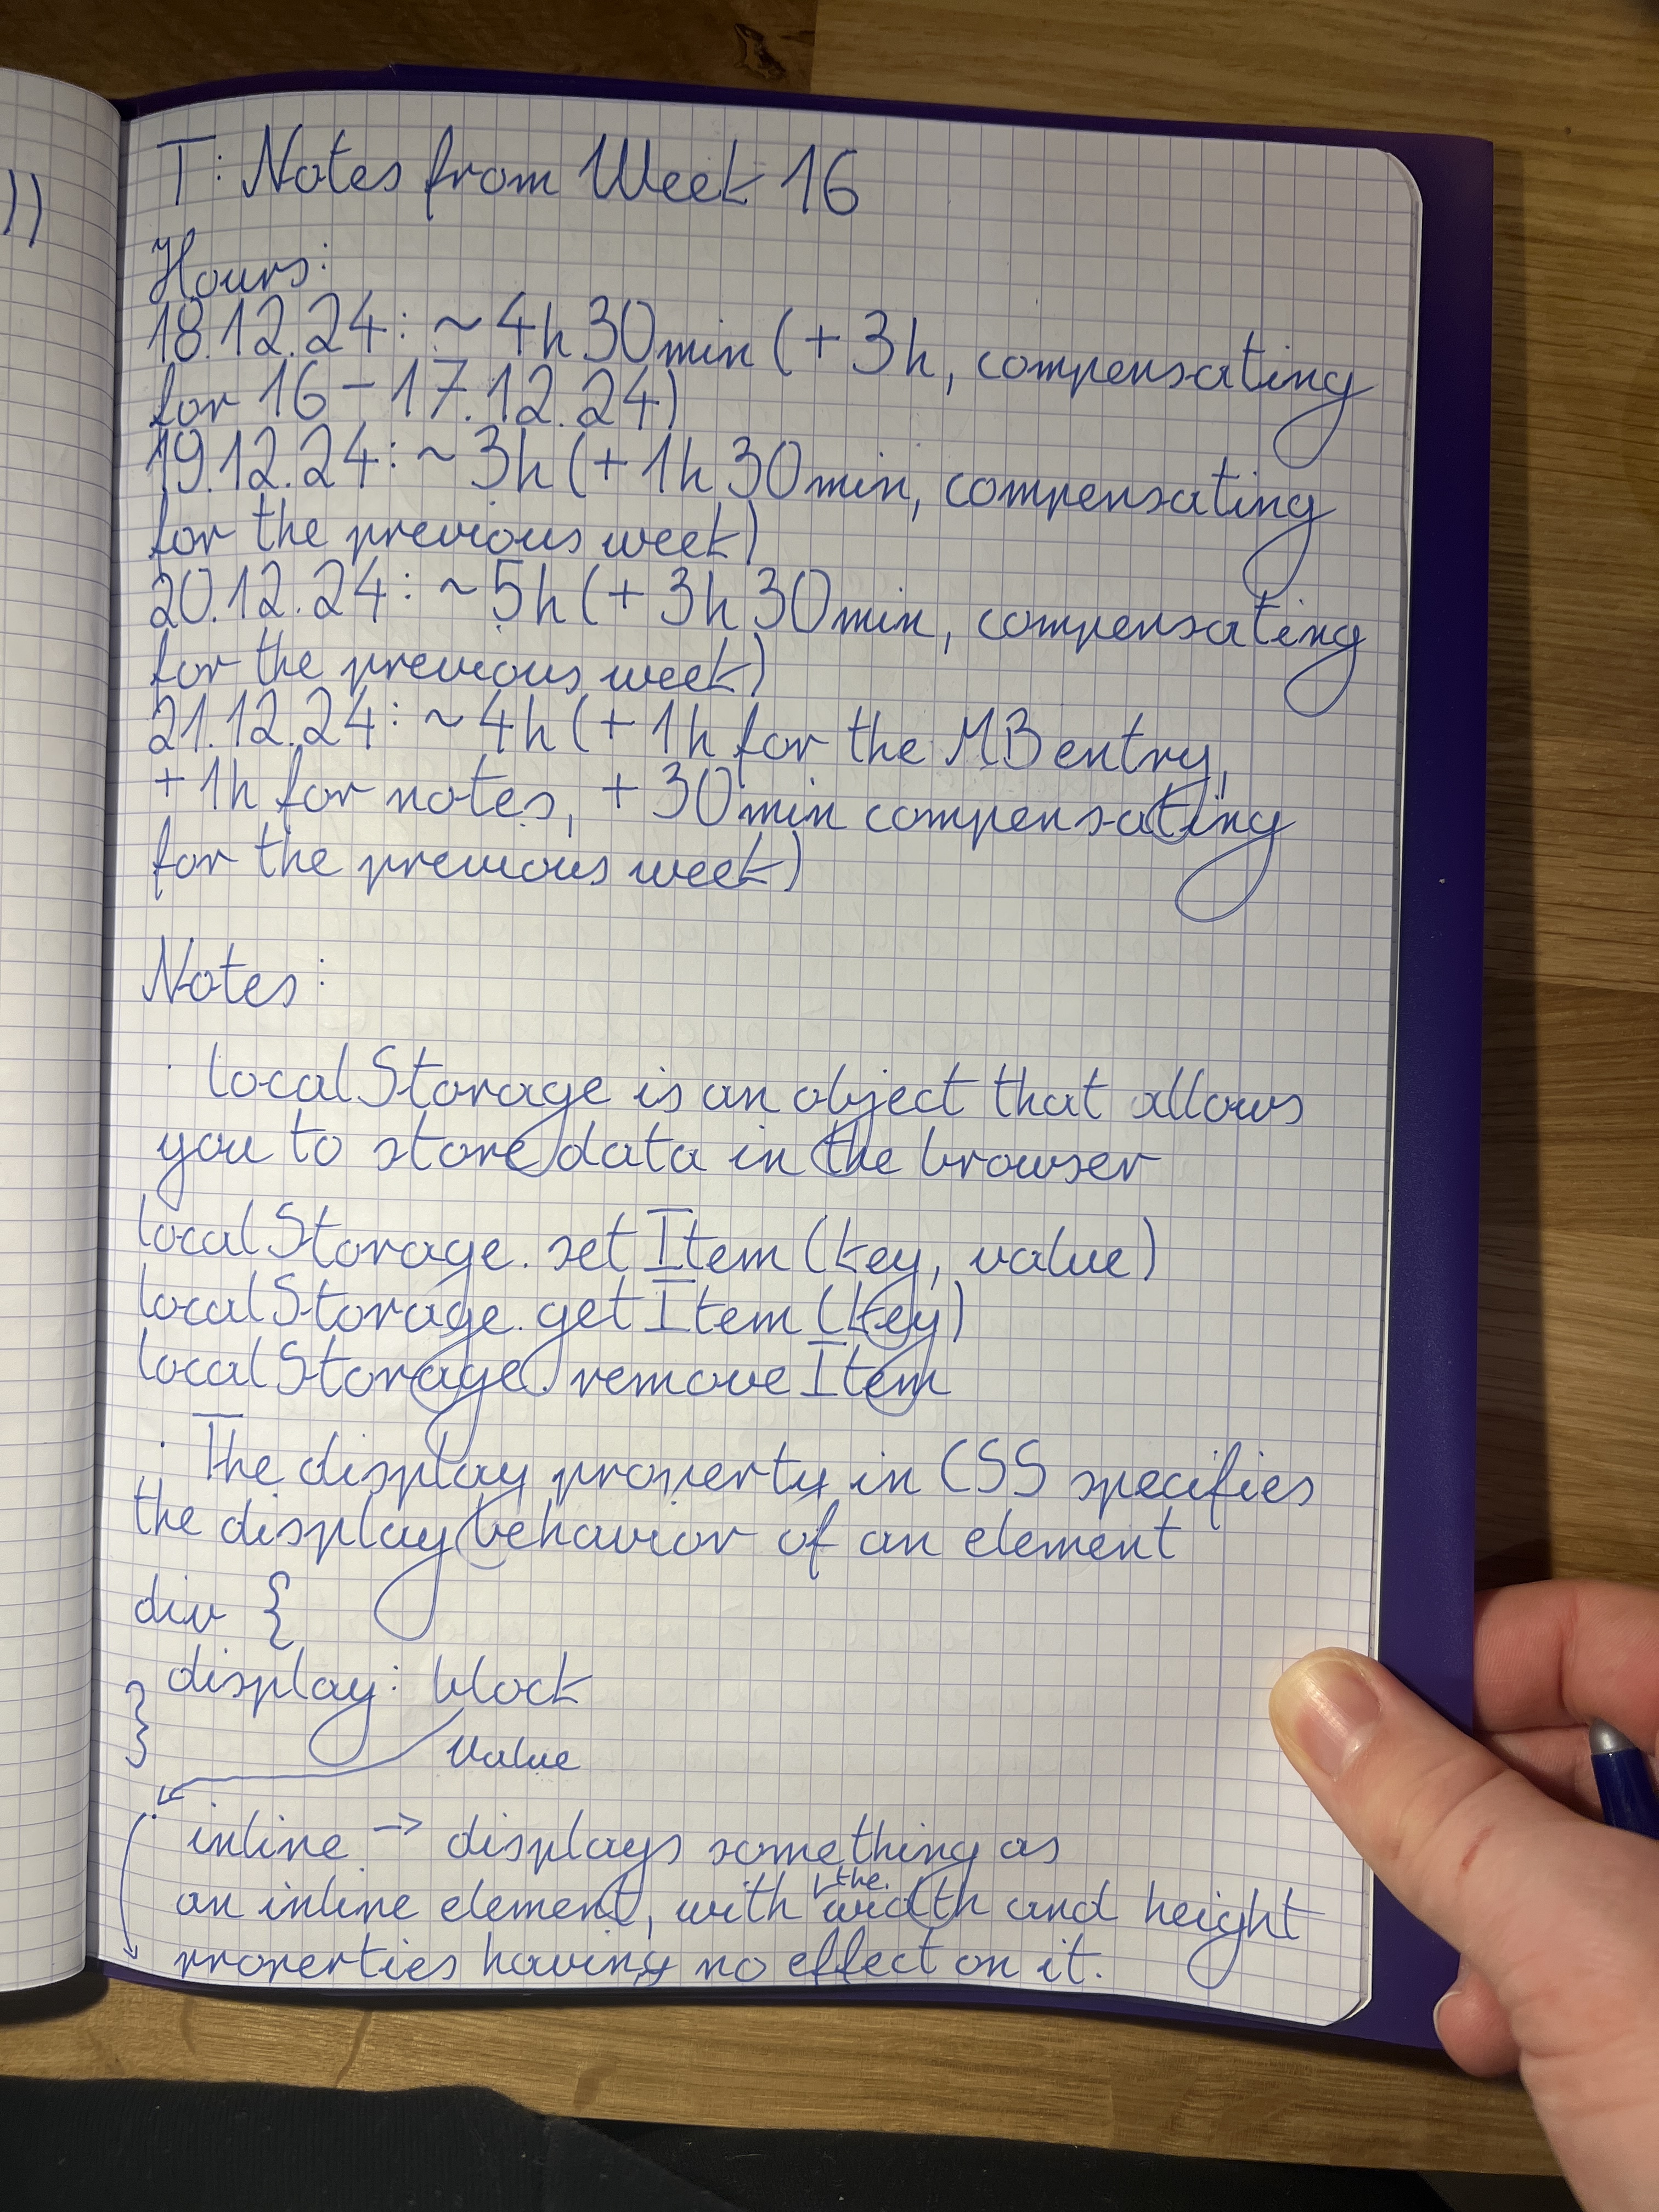 ))
T: Notes from Week 16
Hours:
18.12.24: ~4h 30min (+3h, compensating
for 16-17.12.24)
19.12.24: ~3h (+1h 30min, compensating
for the previous week)
20.12.24: ~5h (+3h 30min, compensating
for the previous week)
21.12.24: ~4h (+1h for the MB entry,
+1h for notes, +30min compensating
for the previous week)
Notes:
· localStorage is an object that allows
you to store data in the browser
localStorage.setItem(key, value)
localStorage.getItem(key)
localStorage.removeItem
· The display property in CSS specifies
the display behavior of an element
div {
display: block
}
value
· inline → displays something as
an inline element, with the width and height
properties having no effect on it.